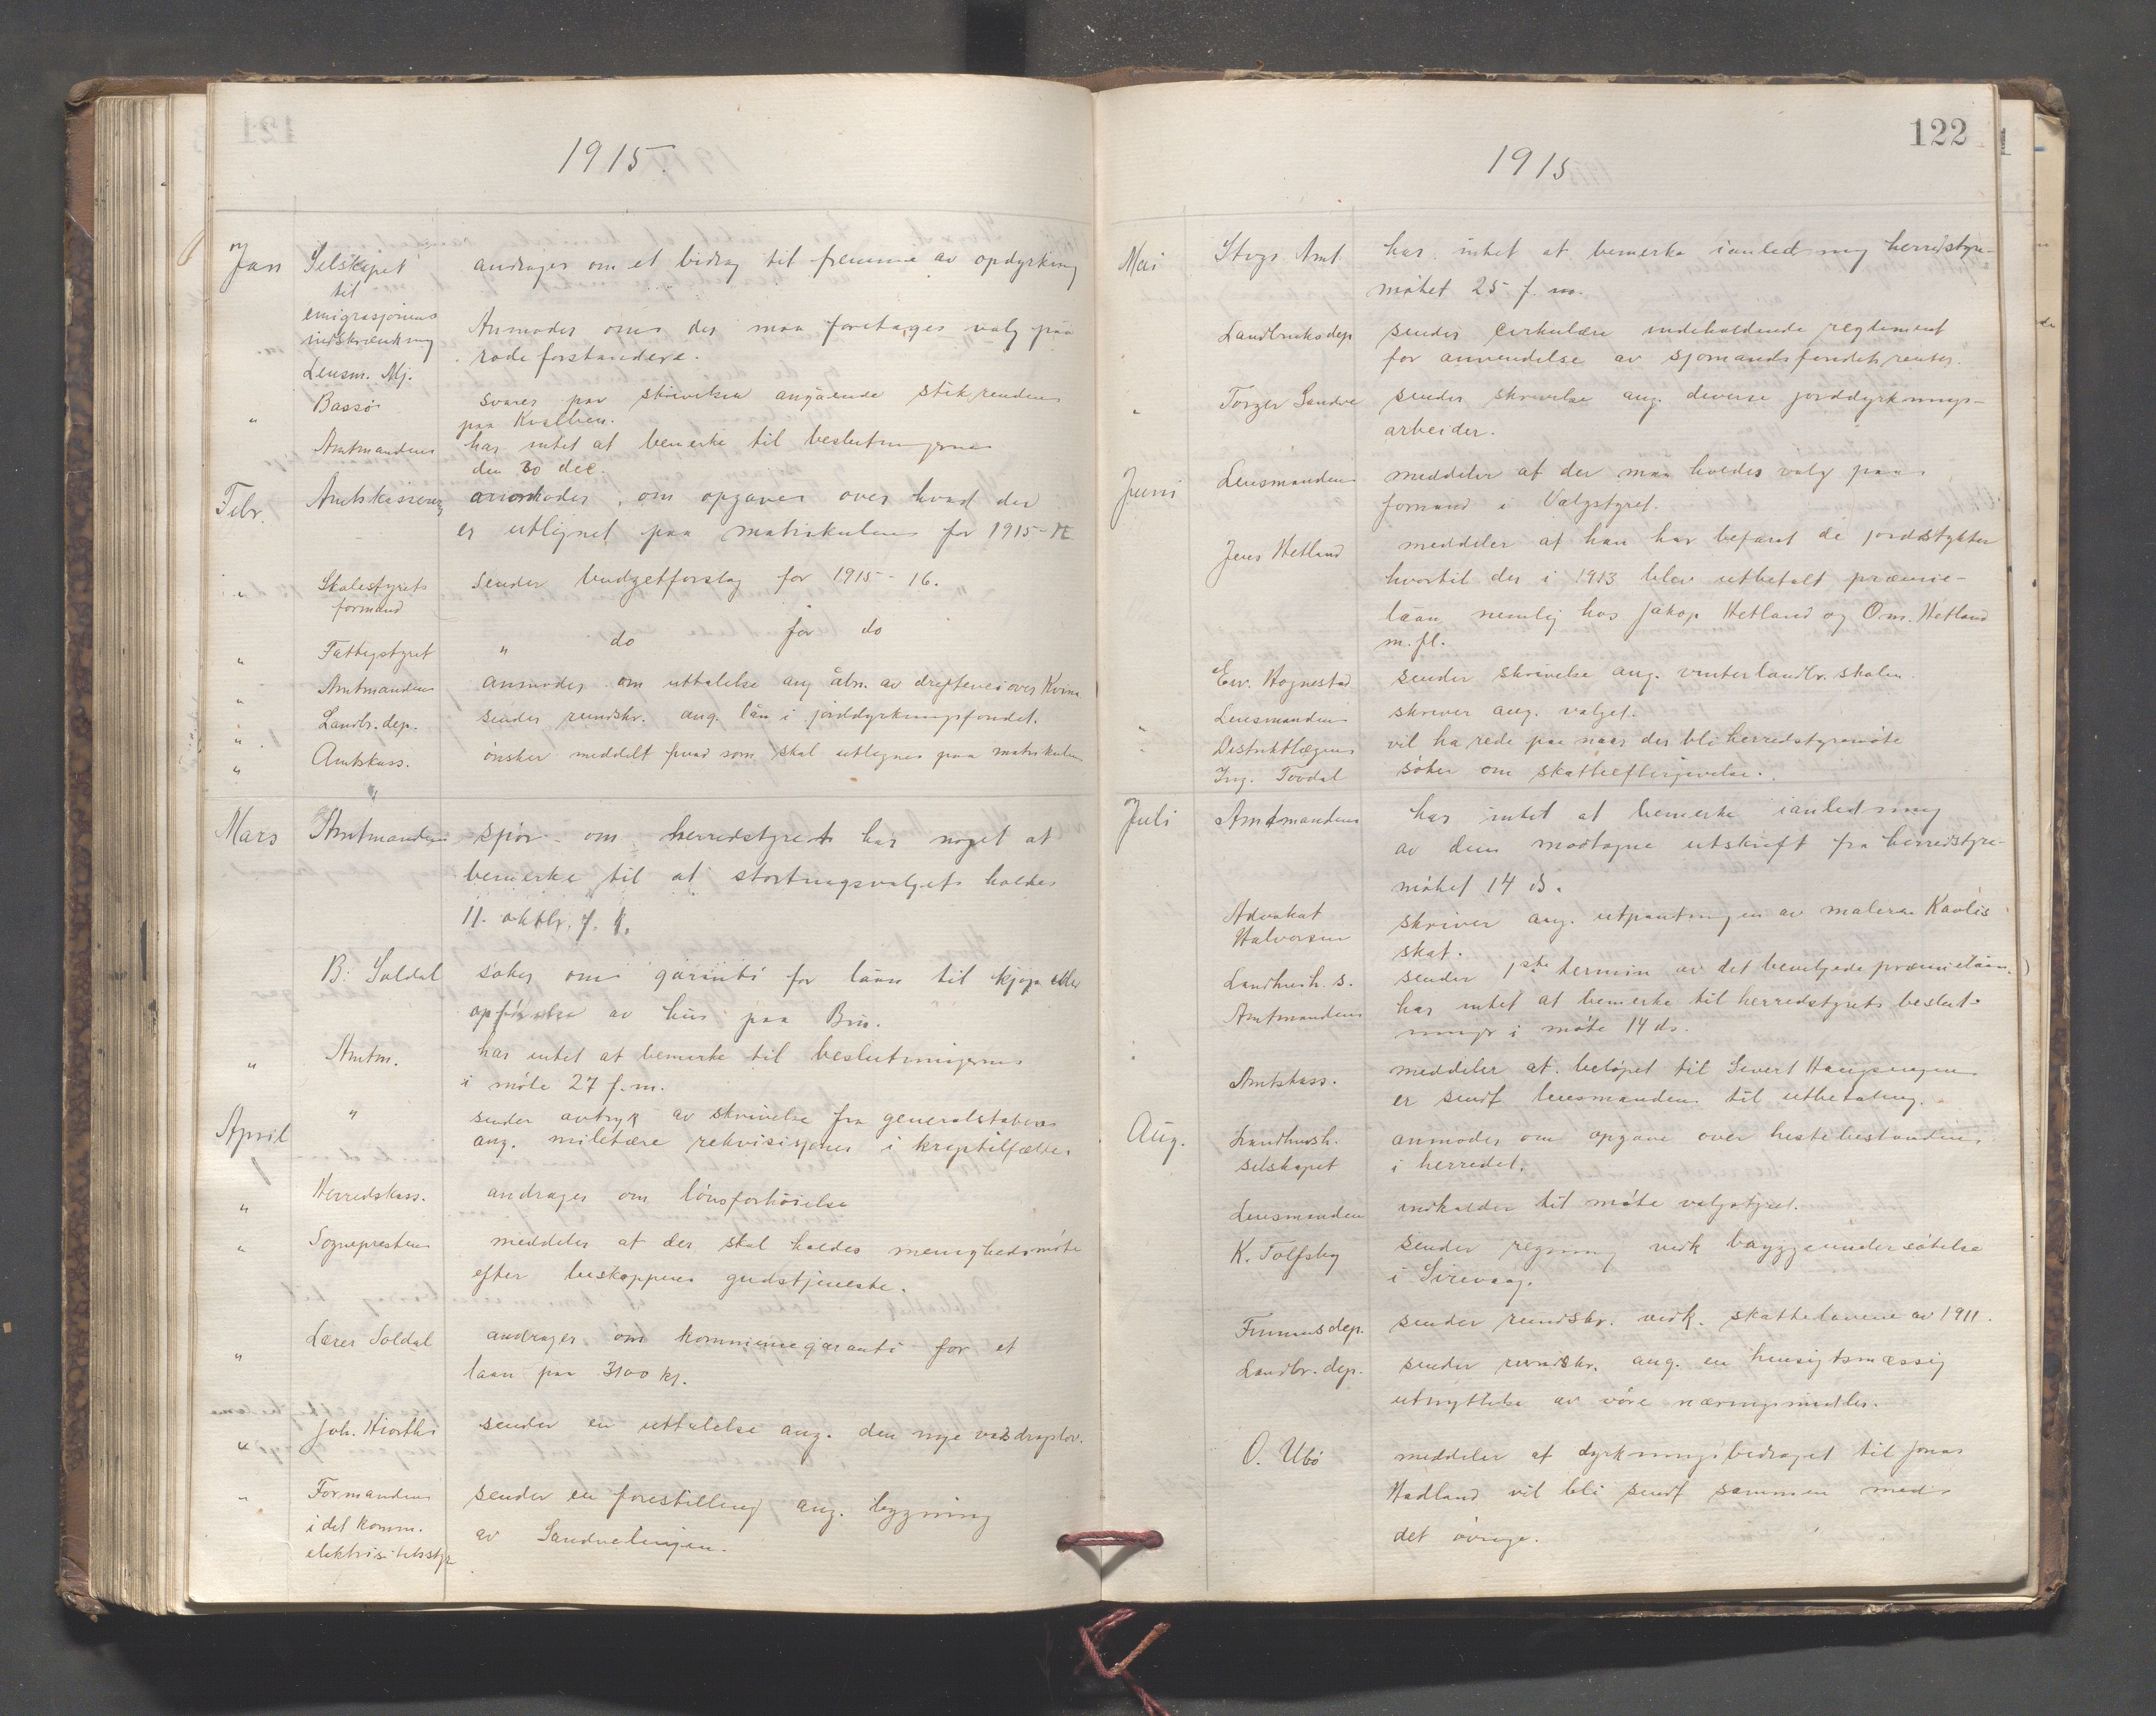 1915.
Jan Selskapet andrager om et bidrag til fremme av opdyrking
til
emigrasjonens
indskrænkning Anmoder om der maa foretages valg paa
rodeforstandere.
Lensm. Mj.
Bassø svarer paa skrivelsen angåaende stikrenden
paa Kvalbein.
" Amtmanden har intet at bemerke til beslutningerne
den 30 dec.
Febr. Amtskasseren anmoder om opgaver over hvad der
er utlignet paa matrikulen for 1915-
" Skolestyrets sender budgetforslag for 1915-16.
formand
" Fattigstyret " do for do
" Amtmanden anmoder om uttalelse ang åbn. av over
" Landbr.dep. sender rundskr. ang. lån i jorddyrkningsfondet.
" Amtskass. ønsker meddelt hvad som skal utlignes paa matrikulen
"
Mars Amtmanden spør om herredstyret har noget at
bemerke til at stortingsvalget holdes
11. oktbr. f. k.
B. Soldal søker om garanti for laan til kjøp eller
opførelse av hus paa Bru.
" Amtm. har intet at bemerke til beslutningerne
i møte 27 f.m.
April " sender avtryk av skrivelse fra generalstaben
ang. militære rekvisisjoner i krigstilfælde.
" Herredskass. andrager om lønsforhøielse
" Sognepresten meddeler at der skal holdes menighedsmøte
efter biskoppens gudstjeneste.
" Lærer Soldal andrager om kommunegaranti for et
laan paa 3100 kr.
" Joh. Hiorth sender en uttalelse ang. den nye vasdragslov.
" Formanden sender en forestilling ang. bygning
i det komm. av Sandvelinjen.
elektrisitetsstyr
122
1915
Mai Stvgr. Amt har intet at bemerke ianledning herredstyre-
møtet 25 f. m.
Landbruksdep sender cirkulære indeholdende reglement
for anvendelse av sjømandsfondets renter.
" Torger Sandve sender skrivelse ang. diverse jorddyrknings-
arbeider.
Juni Lensmanden meddeler at der maa holdes valg paa
formand i Valgstyret.
Jens Hetland meddeler at han har befaret de jordstykker
hvortil der i 1913 blev utbetalt præmie-
laan, nemlig hos Jakop Hetland og Om. Hetland
m.fl.
Ew. Hognestad sender skrivelse ang. vinterlandbr.skolen.
Lensmanden skriver ang. valget.
" Distriktlægen vil ha rede paa naar der bli herredstyremøte
Ing. Tovdal søker om skatteeftergivelse.
Juli Amtmanden har intet at bemerke ianledning
av den modtagne utskrift fra herredstyre-
møtet 14 ds.
Advokat skriver ang. utpantningen av maleren Kavlis
Halvorsen skat.
Landhush. s. sender 1ste termin av det bevilgede præmielaan.
Amtmanden har intet at bemerke til herredstyrets beslut-
ninger i møte 14 ds.
" Amtskass. meddeler at beløpet til Sivert
er sendt lensmanden til utbetaling.
Aug. Landhush. anmoder om opgave over hestebestanden
selskapet i herredet.
Lensmanden indkalder til møte valgstyret.
K. Tolfsby sender regning vedk byggeundersøkelse
i Sirevaag.
Finansdep. sender rundskr. vedk. skattelovene av 1911.
Landbr.dep. sender rundskr. ang. en hensigtsmæssig
utnyttelse av våre næringsmidler.
O. Ubø meddeler at dyrkningsbidraget til Jonas
Hadland vil bli sendt sammen med
det øvrige.